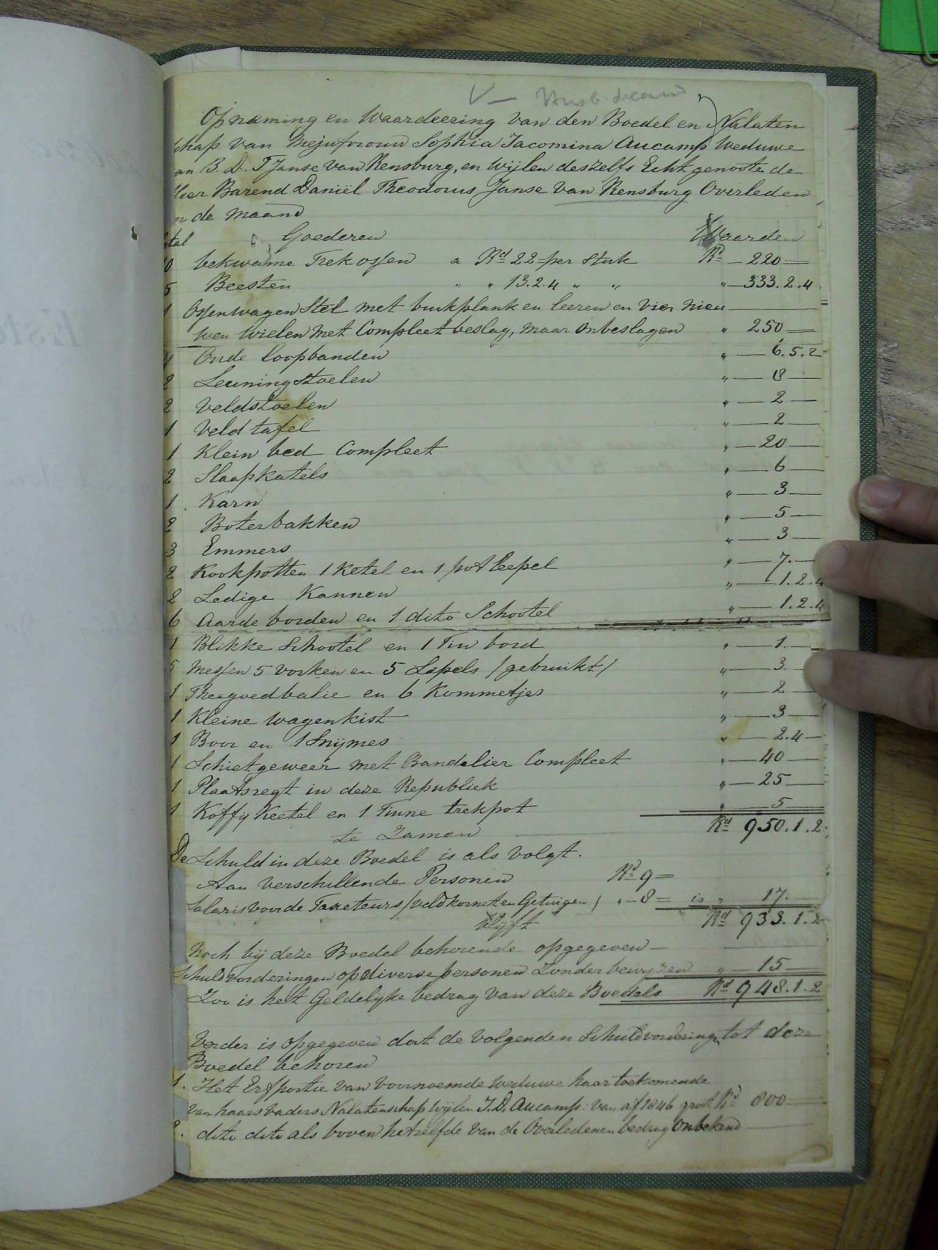 V — Husb. dead
Opneming en Waardeering van den Boedel en Nalaten
schap van Mejufvrouw Sophia Jacomina Aucamp Weduwe
van B. D. T. Janse van Rensburg, en wijlen deszelfs Echtgenoote de
Heer Barend Daniel Theodorus Janse van Rensburg Overleden
in de Maand
tal Goederen Waarden
10 bekwame Trek ossen a Rd 22 – per stuk Rd — 220 —
5 Beesten " " 13.2.4 " " " — 333.2.4
1 Ossenwagen Stel met buikplank en leeren en vier nieu
wen Wielen met Compleet beslag, maar onbeslagen " 250 —
4 Oude loopbanden " — 6.5.2
2 Leuningstoelen " — 18 —
2 Veldstoelen " — 2 —
1 Veld tafel " — 2 —
1 Klein bed Compleet " — 20 —
2 Slaapkatels " — 6 —
1 Karn " — 3 —
2 Boterbakken " — 5 —
3 Emmers " — 3 —
2 Kookpotten 1 Ketel en 1 pot Leepel " — 7 —
2 Ledige Kannen " — 1.2.4
6 Aarde borden en 1 dito Schootel " — 1.2.4
1 Blikke Schootel en 1 Tin bord " — 1 —
5 Messen 5 vorken en 5 Lepels /gebruikt/ " — 3 —
1 Theegoedbalie en 6 Kommetjes " — 2 —
1 Kleine Wagenkist " — 3 —
1 Boor en 1 Snijmes " — 2.4 —
1 Schietgeweer met Bandelier Compleet " — 40 —
1 Plaatsregt in deze Republiek " — 25 —
1 Koffij Keetel en 1 Tinne trekpot " — 5 —
te Zamen Rd 950.1.2
De Schuld in deze Boedel is als volgt.
Aan Verschillende Personen Rd 9 =
Salaris voor de Taxateurs /veldkornet en Getuigen/ " – 8 = is " 17. —
Blijft Rd 933.1.2
Noch bij deze Boedel behorende opgegeven —
Schuldvorderingen op diverse personen Zonder bewyzen " — 15 —
Zoo is het Geldelijke bedrag van deze Boedels Rd 948.1.2
Verder is opgegeven dat de volgenden Schuldvordering tot deze
Boedel behoren
1. Het Erfportie van voornoemde weduwe haar toekomende
van haars vaders Nalatenschap Wijlen J. D. Aucamp van af 1846 groot Rd 800 —
2. dito dito als boven hetzelfde van de Overledenen bedrag Onbekend